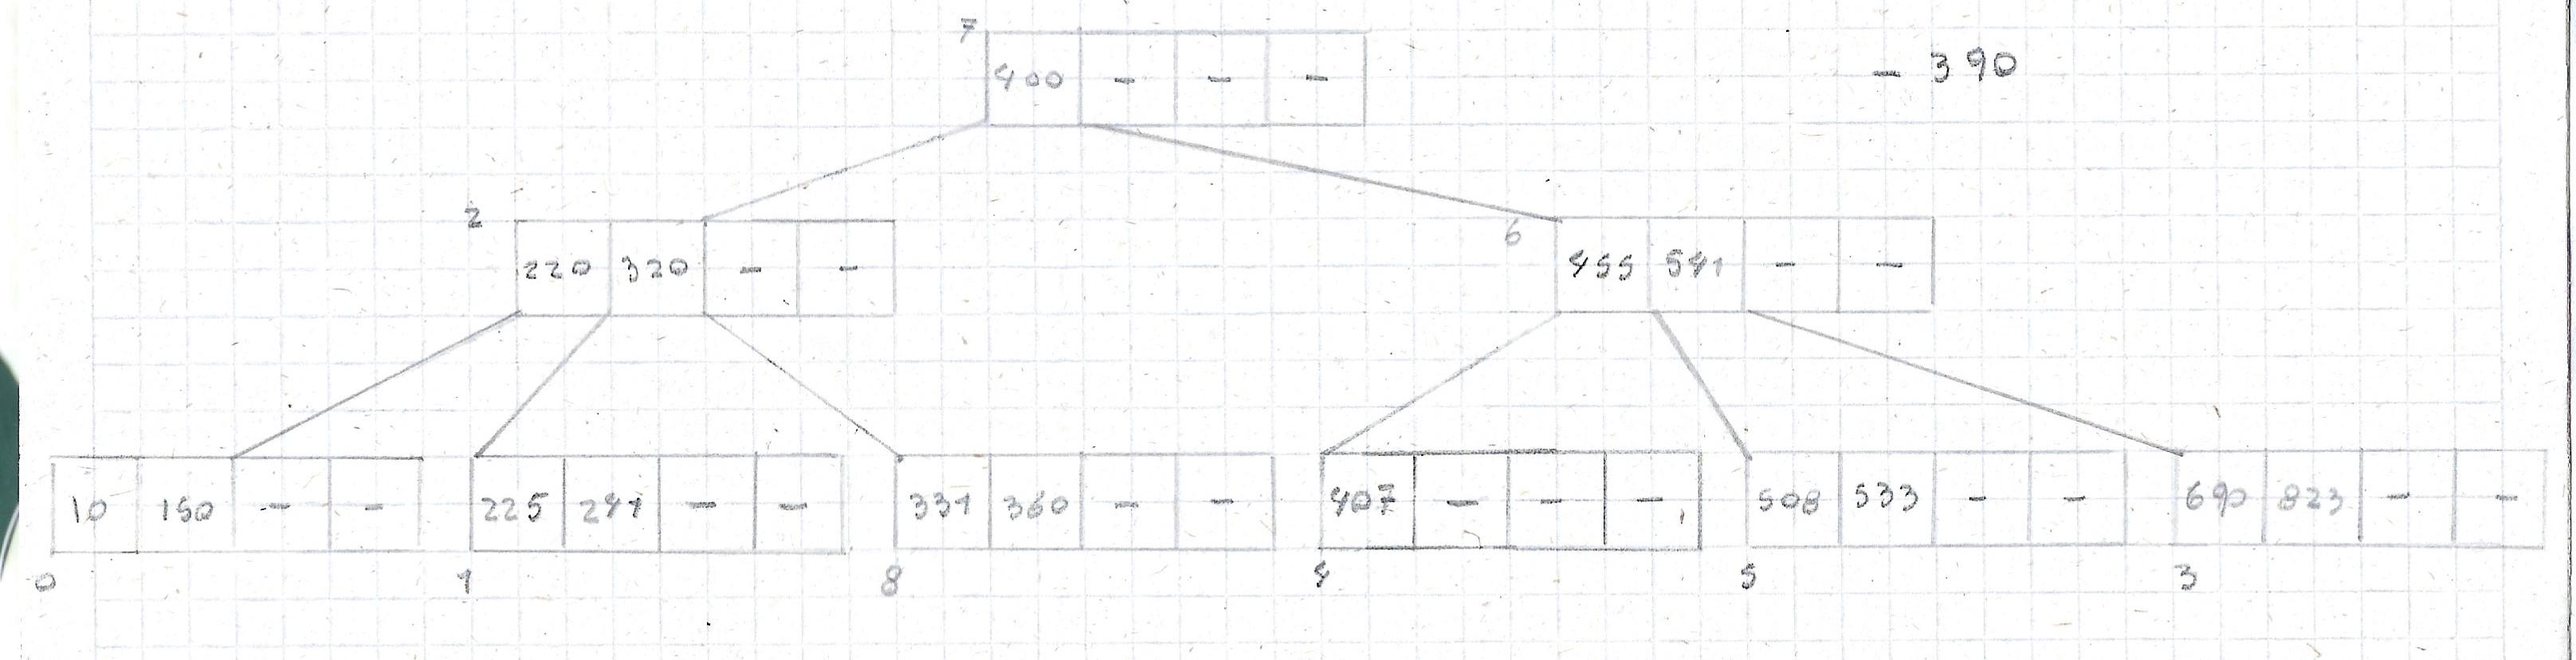 7
400 - - -
- 390
2
220 320 - -
6
455 541 - -
10 150 - -
225 241 - -
331 360 - -
407 - - -
508 533 - -
690 823 - -
0 1 8 4 5 3